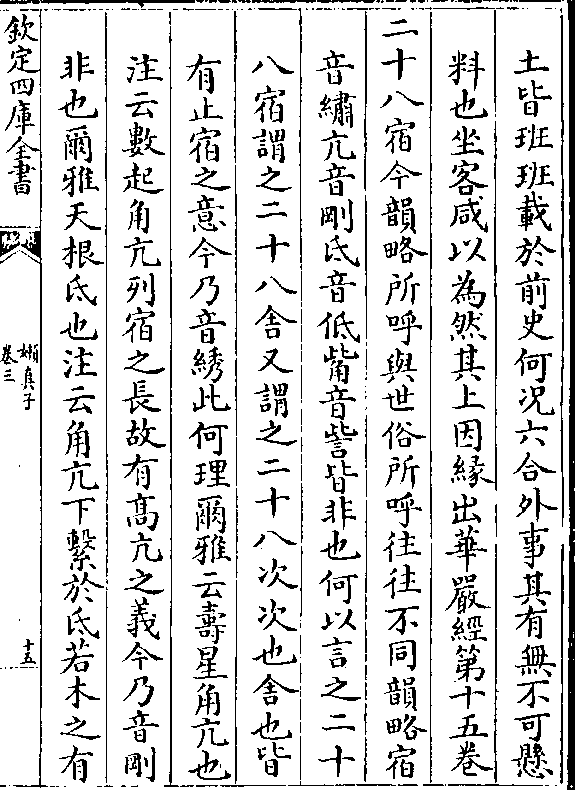 土皆班班載於前史何况六合外事其有無不可懸
料也坐客咸以為然其上因緣出華嚴經第十五卷
二十八宿今韻略所呼與世俗所呼往往不同韻略宿
音繡亢音剛氐音低觜音訾皆非也何以言之二十
八宿謂之二十八舍又謂之二十八次次也舍也皆
有止宿之意今乃音綉此何理爾雅云壽星角亢也
注云數起角亢列宿之長故有髙亢之義今乃音剛
非也爾雅天根氐也注云角亢下繫於氐若木之有
欽定四庫全書
嬾真子
卷三
十五